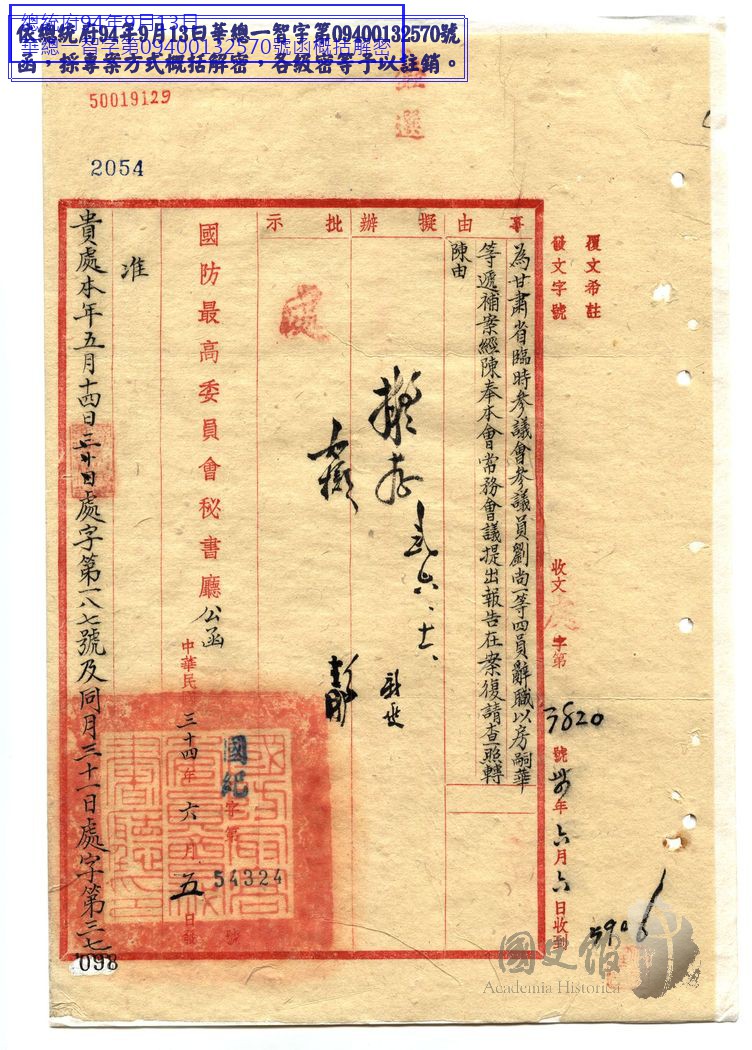 總統府94年9月13日
華總一智字第09400132570號函概括解密
依總統府94年9月13日華總一智字第09400132570號
函，採專案方式概括解密，各級密等予以註銷。
50019129
2054
覆文希註
發文字號
收文
字第
3820
號
年六月六日收到
5906
事由
為甘肅省臨時參議會參議員劉尚一等四員辭職以房嗣華
等遞補案經陳奉本會常務會議提出報告在案復請查照轉
陳由
擬辦
擬存
批示
國防最高委員會秘書廳公函
中華民國三十四年六月五日發
國紀字第54324號
准
貴處本年五月十四日三十日處字第一八七號及同月三十一日處字第三七
098
國史館
Academia Historica